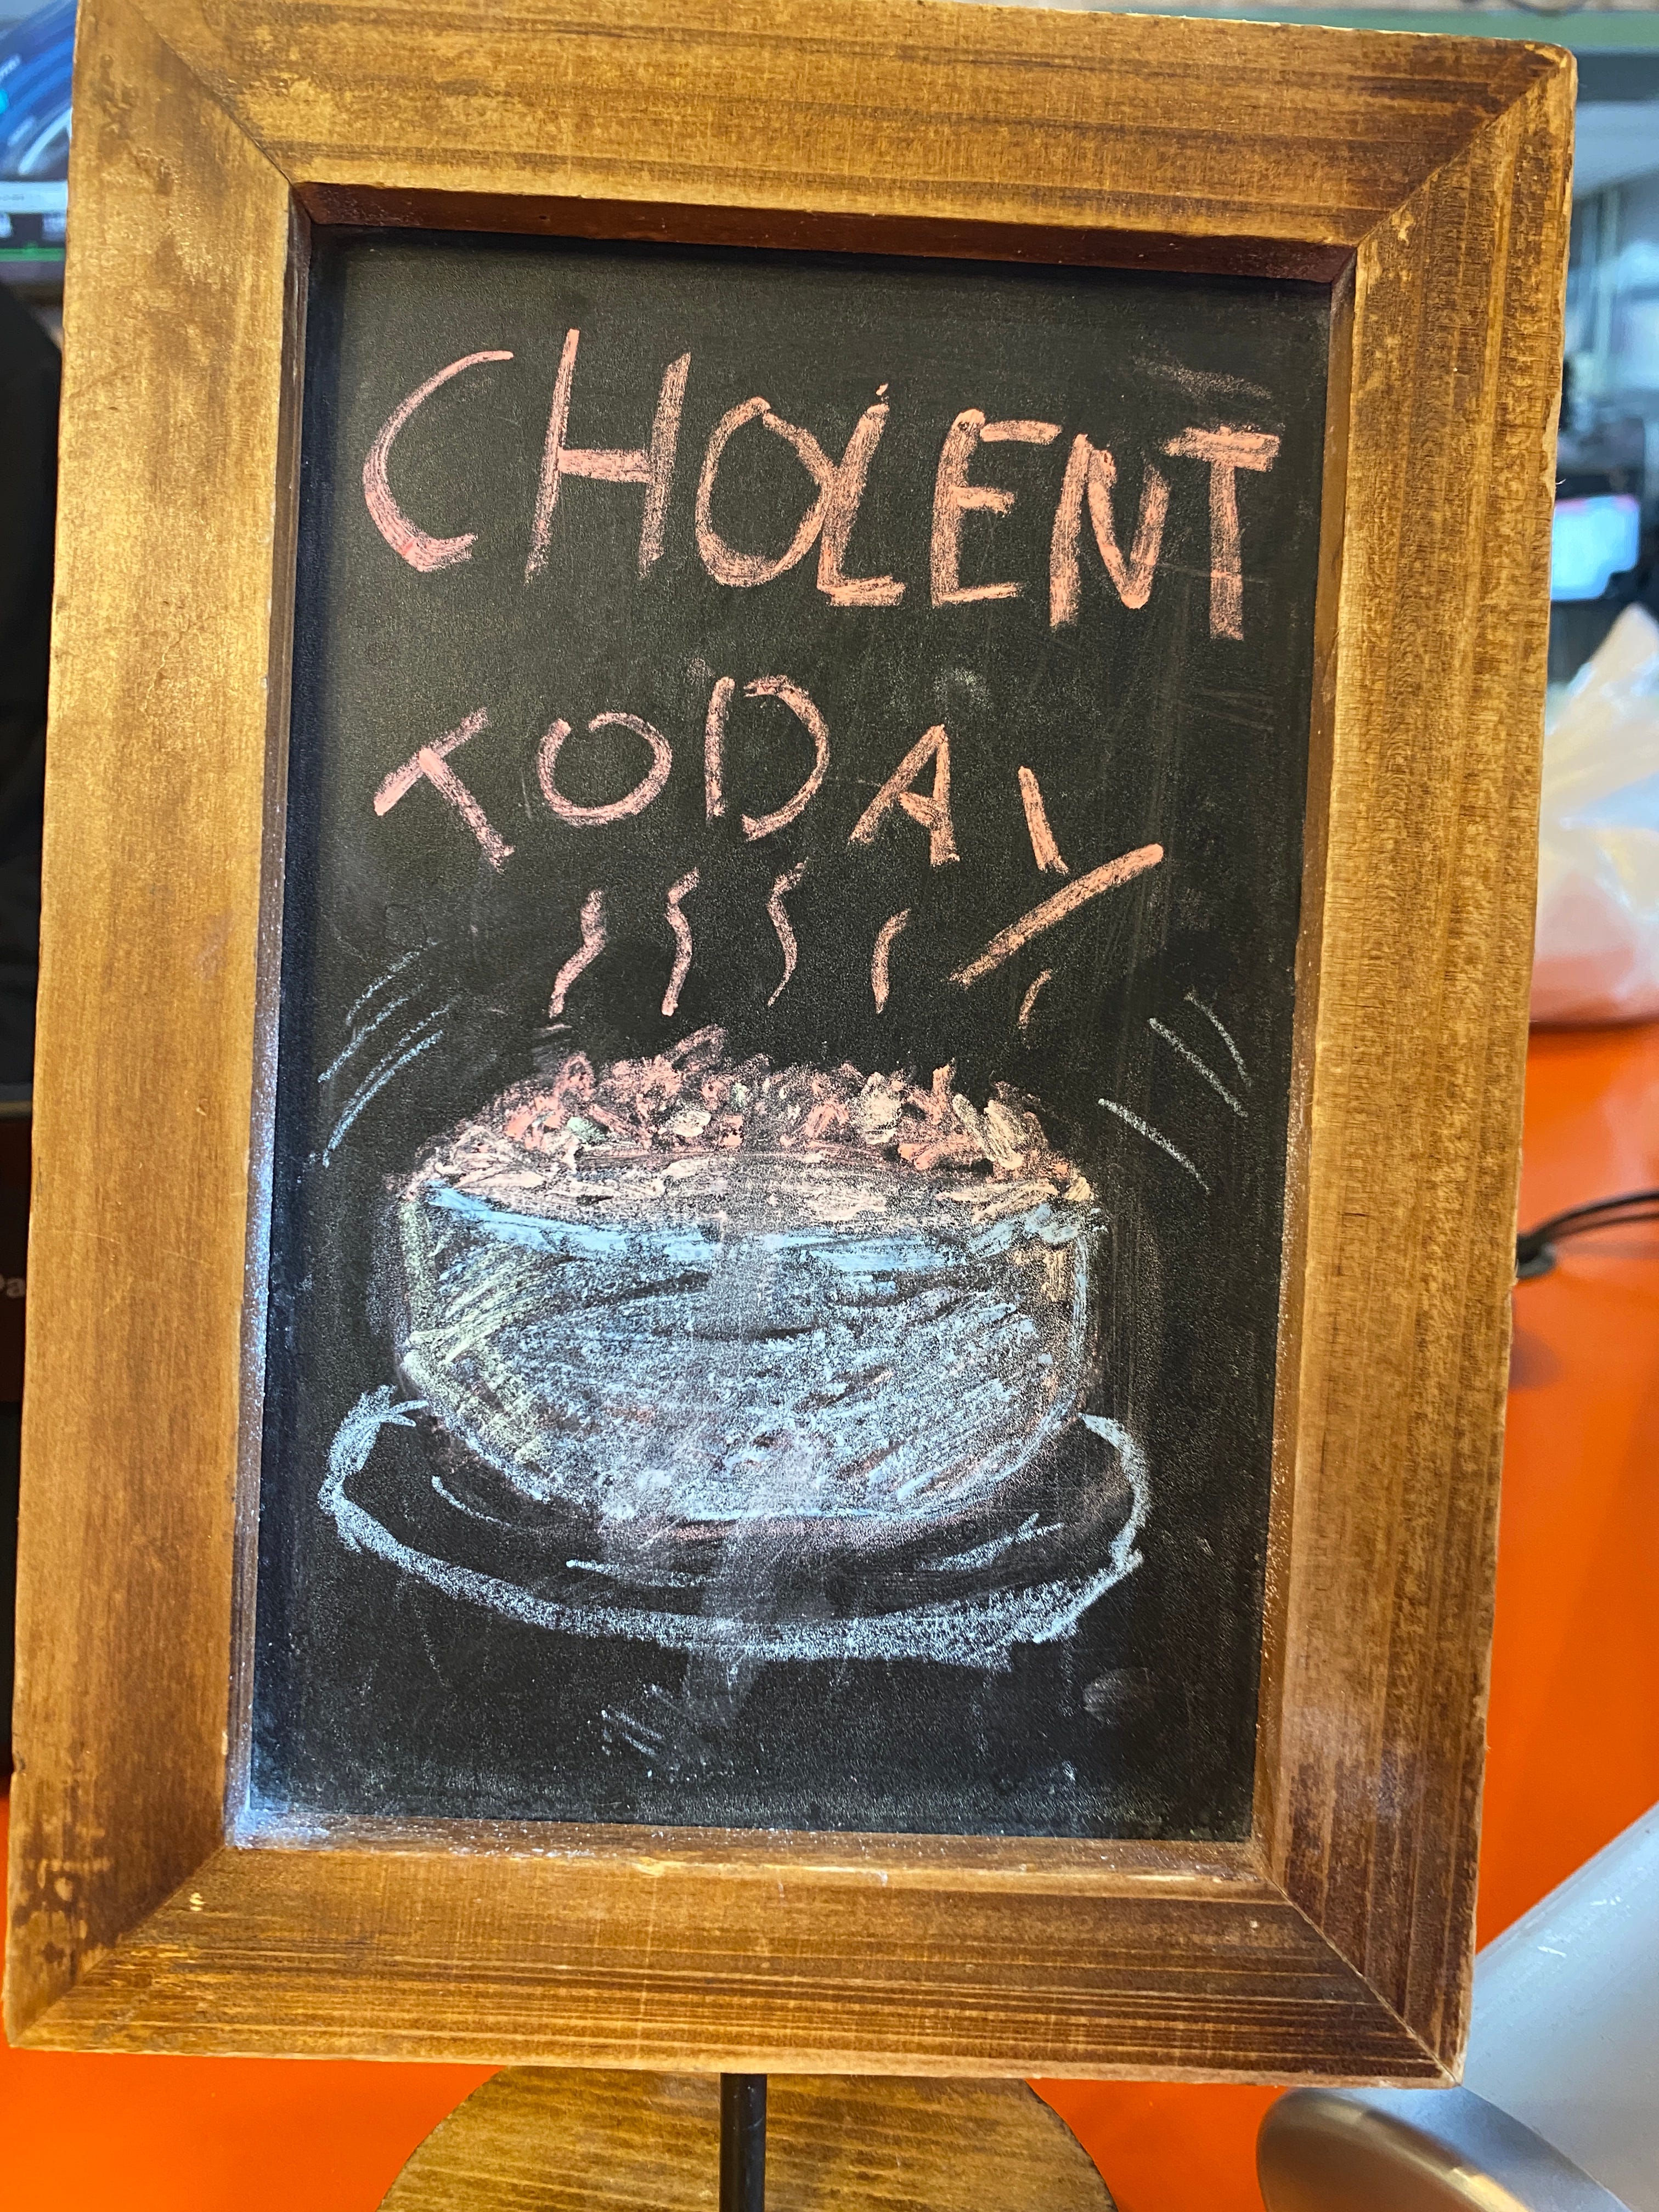 CHOLENT
TODAY